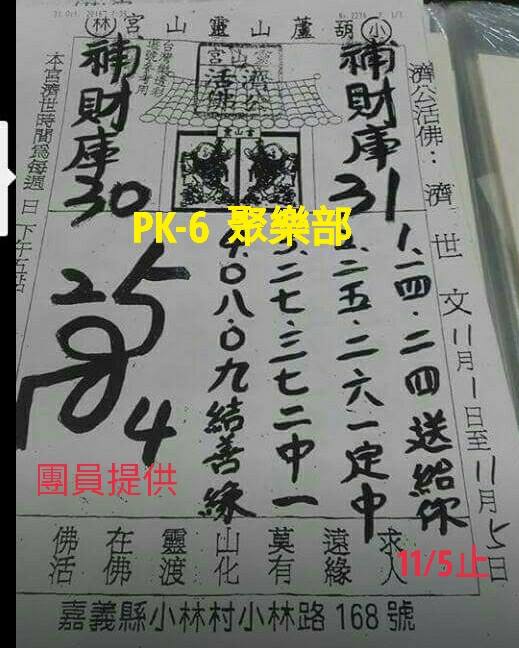 小葫蘆山靈山宮林
濟公活佛：濟世文11月1日至11月5日
補財庫31
補財庫30
濟公活佛
本宮濟世時間為每週日下午五點
PK-6 聚樂部
1.二四.二四送給你
二五.二六一定中
二七.三七二中一
0八.0九結善緣
25
4
團員提供
佛在靈山莫遠求
活佛渡化有緣人
11/5止
嘉義縣小林村小林路168號